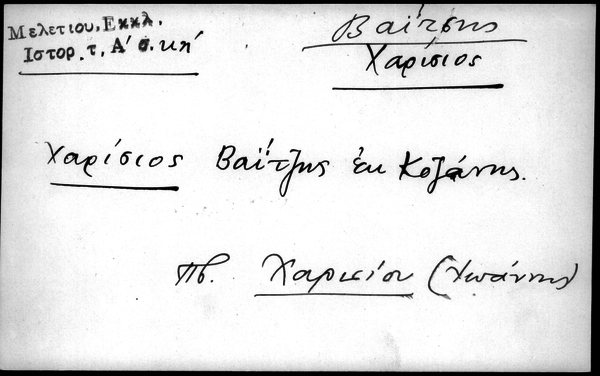 Μελετιου, Εκκλ.
Ιστορ. τ, Α' σ. κή
Βαΐτσης
Χαρίσιος
Χαρίσιος Βαΐτζης ἐκ Κοζάνης.
πβ. Χαρισίου (Ἰωάννης)